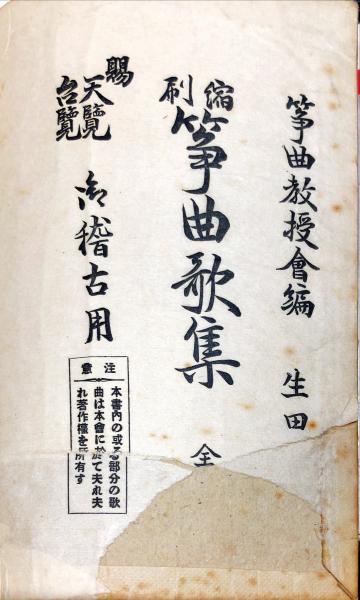 箏曲教授會編 生田
縮刷
箏曲歌集 全
賜
天覽
台覽
御稽古用
注意
本書內の或る部分の歌
曲は本會に於て夫れ夫
れ著作權を所有す